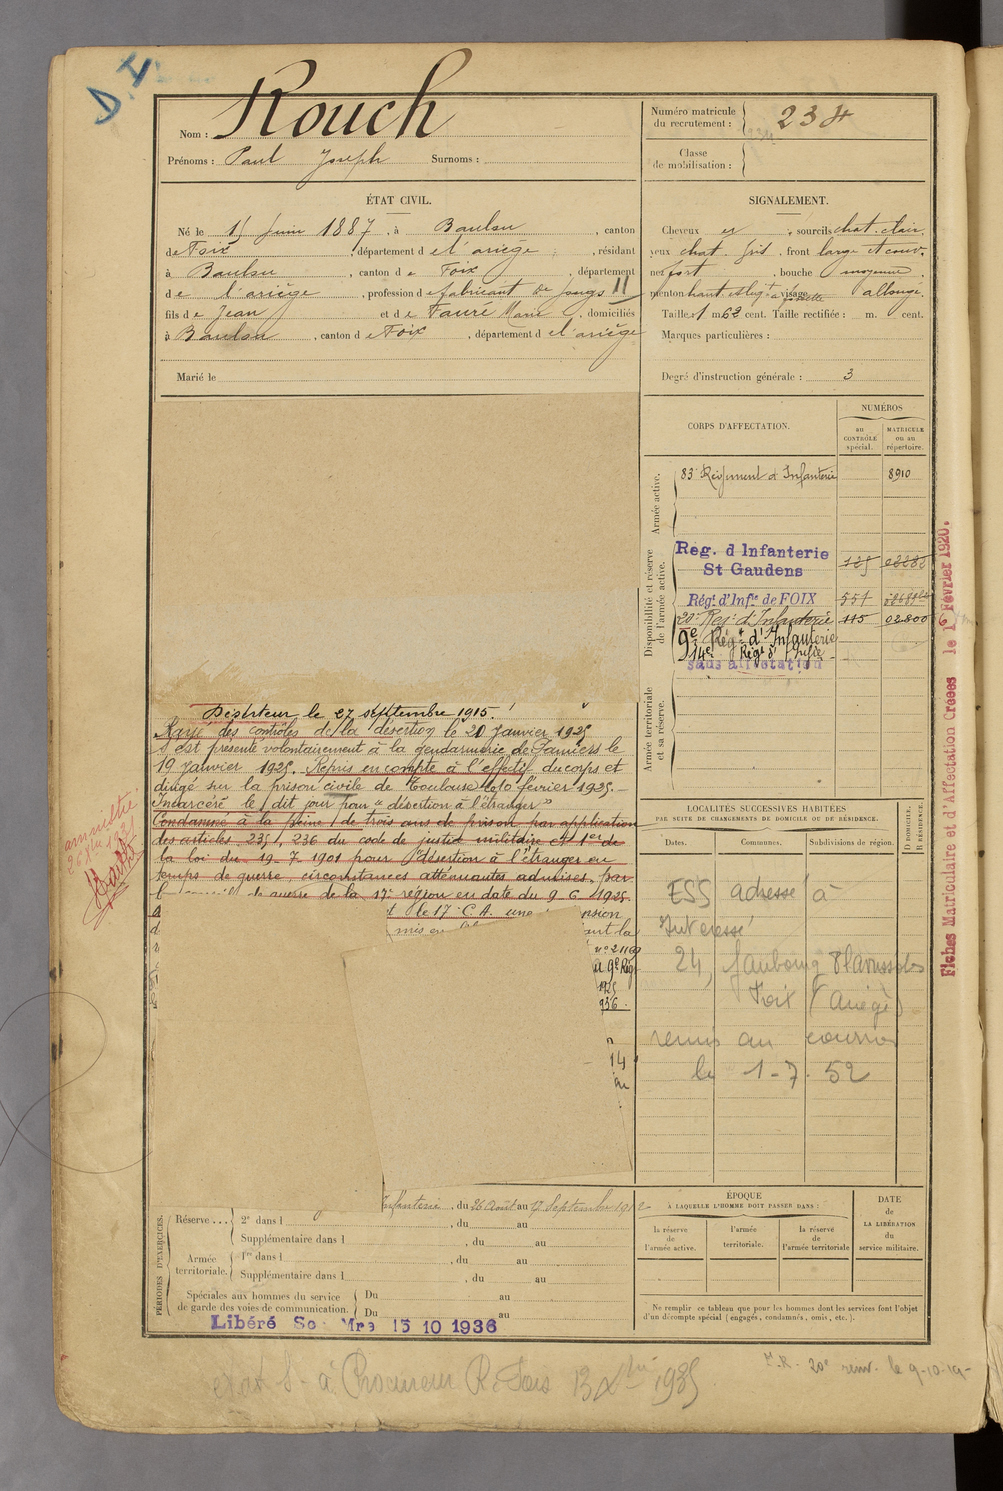 D.
Nom : Rouch
Prénoms : Paul Joseph Surnoms :
Numéro matricule
du recrutement : 234
Classe
de mobilisation :
ÉTAT CIVIL.
Né le 15 Juin 1887, à Baulou, canton
de Foix, département de l'ariège, résidant
à Baulou, canton de Foix, département
de l'ariège, profession de fabricant de jougs 11
fils de Jean et de Faure Marie, domiciliés
à Baulou, canton de Foix, département de l'ariège
Marié le
SIGNALEMENT.
Cheveux et, sourcils chat. clair,
yeux chat. gris, front large et couv.
nez fort, bouche moyenne,
menton haut et leg.t à fossette visage allongé.
Taille : 1 m 62 cent. Taille rectifiée : m. cent.
Marques particulières :
Degré d'instruction générale : 3
CORPS D'AFFECTATION.
NUMÉROS
au
CONTRÔLE
spécial.
MATRICULE
ou au
répertoire.
Armée active.
83e Régiment d'Infanterie 8910
Disponibilité et réserve
de l'armée active.
Reg. d Infanterie
St Gaudens 125
Régt d'Infie de FOIX 551
20e Reg. d'Infanterie 115 02800
9e Régt d'Infanterie
14e Régt d'Infie
sans affectation
Armée territoriale
et sa réserve.
Fiches Matriculaire et d'Affectation Créées le 1er Février 1920.
Déserteur le 27 septembre 1915.
Rayé des contrôles de la désertion le 20 Janvier 1925
S'est présenté volontairement à la gendarmerie de Pamiers le
19 Janvier 1925. Repris en compte à l'effectif du corps et
dirigé sur la prison civile de Toulouse le 10 février 1925.
Incarcéré le dit jour pour "désertion à l'étranger"
Condamné à la peine de trois ans de prison par application
des articles 235, 236 du code de justice militaire et 1er de
la loi du 19-7-1901 pour "désertion à l'étranger en
temps de guerre, circonstances atténuantes admises, par
l de guerre de la 17e région en date du 9-6-1925.
t le 17e C.A. une nsion
mis en ant la
no 21169
a 9e Régt
1925
936.
14
amnistié
LOCALITÉS SUCCESSIVES HABITÉES
PAR SUITE DE CHANGEMENTS DE DOMICILE OU DE RÉSIDENCE.
Dates. Communes. Subdivisions de région.
D DOMICILE.
R RÉSIDENCE.
ESS adressé à
Intéressé
24, faubourg Planissoles
Foix (Ariège)
remis au courrier
le 1-7-52
PÉRIODES D'EXERCICES.
Infanterie, du 26 Août au 17 Septembre 1912
Réserve ... 2e dans l , du au
Supplémentaire dans l , du au
Armée
territoriale. 1re dans l , du au
Supplémentaire dans l , du au
Spéciales aux hommes du service
de garde des voies de communication. Du au
Du au
Libéré Sce Mre 15 10 1936
ÉPOQUE
À LAQUELLE L'HOMME DOIT PASSER DANS :
la réserve
de
l'armée active.
l'armée
territoriale.
la réserve
de
l'armée territoriale
DATE
de
LA LIBÉRATION
du
service militaire.
Ne remplir ce tableau que pour les hommes dont les services font l'objet
d'un décompte spécial (engagés, condamnés, omis, etc.).
à Procureur R. Foix 13 Xbre 1935
20e renv. le 9-10-19-